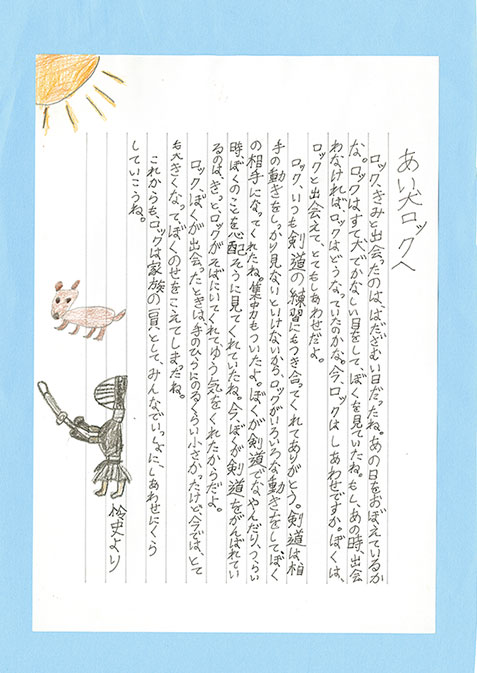 あい犬ロックへ
ロック、きみと出会ったのは、はだざむい日だったね。あの日をおぼえているか
な。ロックはすて犬でかなしい目をして、ぼくを見ていたね。もし、あの時、出会
わなければ、ロックはどうなっていたのかな。今、ロックはしあわせですか。ぼくは、
ロックと出会えて、とてもしあわせだよ。
ロック、いつも剣道の練習にもつき合ってくれてありがとう。剣道は相
手の動きをしっかり見ないといけないから、ロックがいろいろな動きをしてぼく
の相手になってくれたね。集中力もついたよ。ぼくが剣道でなやんだり、つらい
時、ぼくのことを心配そうに見てくれていたね。今、ぼくが剣道をがんばれてい
るのは、きっと、ロックがそばにいてくれて、ゆう気をくれたからだよ。
ロック、ぼくが出会ったときは、手のひらにのるくらい小さかったけど、今では、とて
も大きくなって、ぼくのせをこえてしまったね。
これからも、ロックは家族の一員として、みんなでいっしょに、しあわせにくら
していこうね。
史より